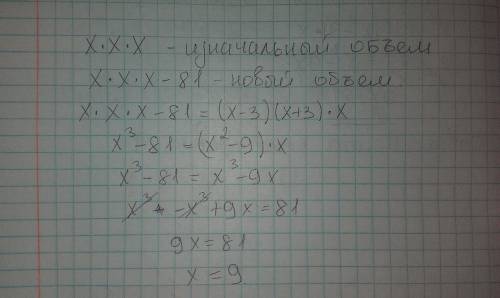 x·x·x - изначальный объем
x·x·x-81-новый объем
x·x·x-81=(x-3)(x+3)·x
x³-81=(x²-9)·x
x³-81=x³-9x
x³-x³+9x=81
9x=81
x=9